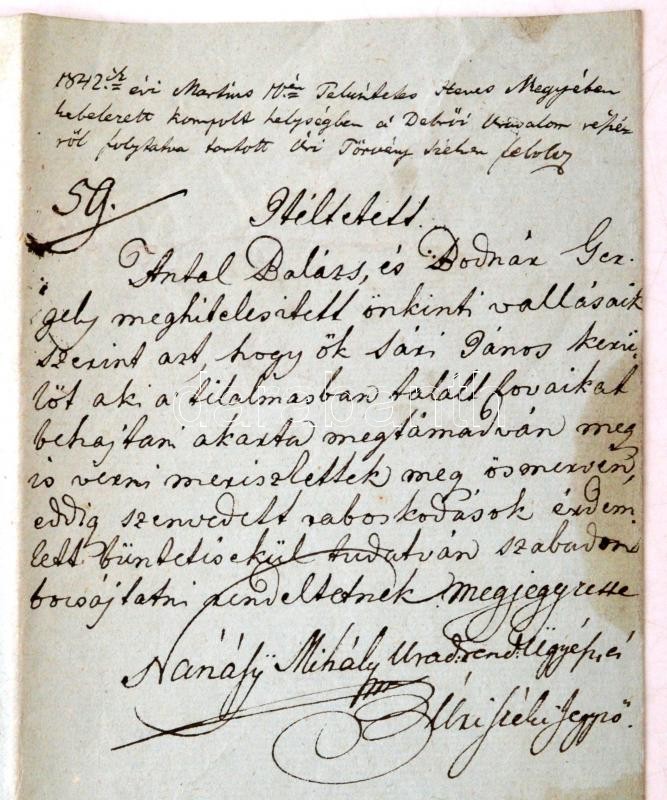 1842.ik évi Martius 10én Tekintetes Heves Megyében
kebelezett Kompolt helységben a Debrői Uradalom részé-
ről folytatva tartott Úri Törvény Széken
59.
Itéltetett.
Antal Balázs, és Bodnár Ger-
gely meghitelesitett önkinti vallásaik
szerint azt, hogy ők Sári János kerü-
löt aki a tilalmasban talált lovaikat
behajtani akarta megtámadván meg
is verni merészlettek meg ösmervén,
eddig szenvedett raboskodások érdem-
lett büntetésekül tudatván szabadon
bocsájtatni rendeltetnek. Megjegyzette
Nánásÿ Mihály Urad: rend: Ügyész, és
Úri Széki Jegyző.
darabanth